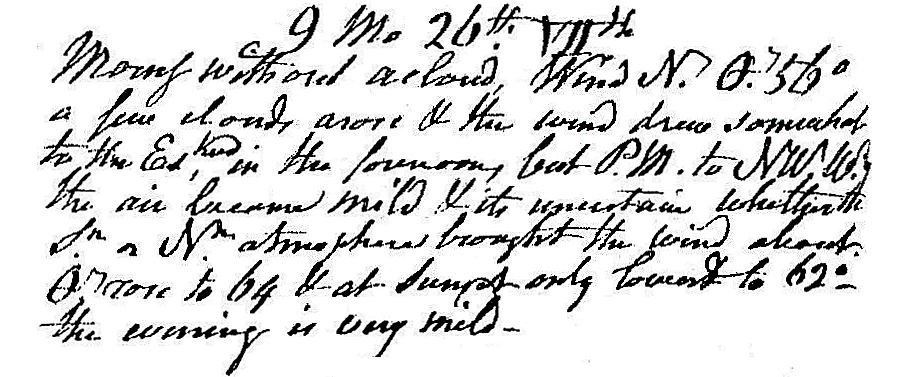 9 Mo 26th. VIIth
Morng without a cloud, Wind N. O. 56°
a few clouds arose & the wind drew somewhat
to the Estwd, in the forenoon, but P.M. to NW. W.
the air became mild & its uncertain whether the
Sn or Nn atmosphere brought the wind about.
O. rose to 64 & at Sunset only lowerd to 62°.
the evening is very mild -